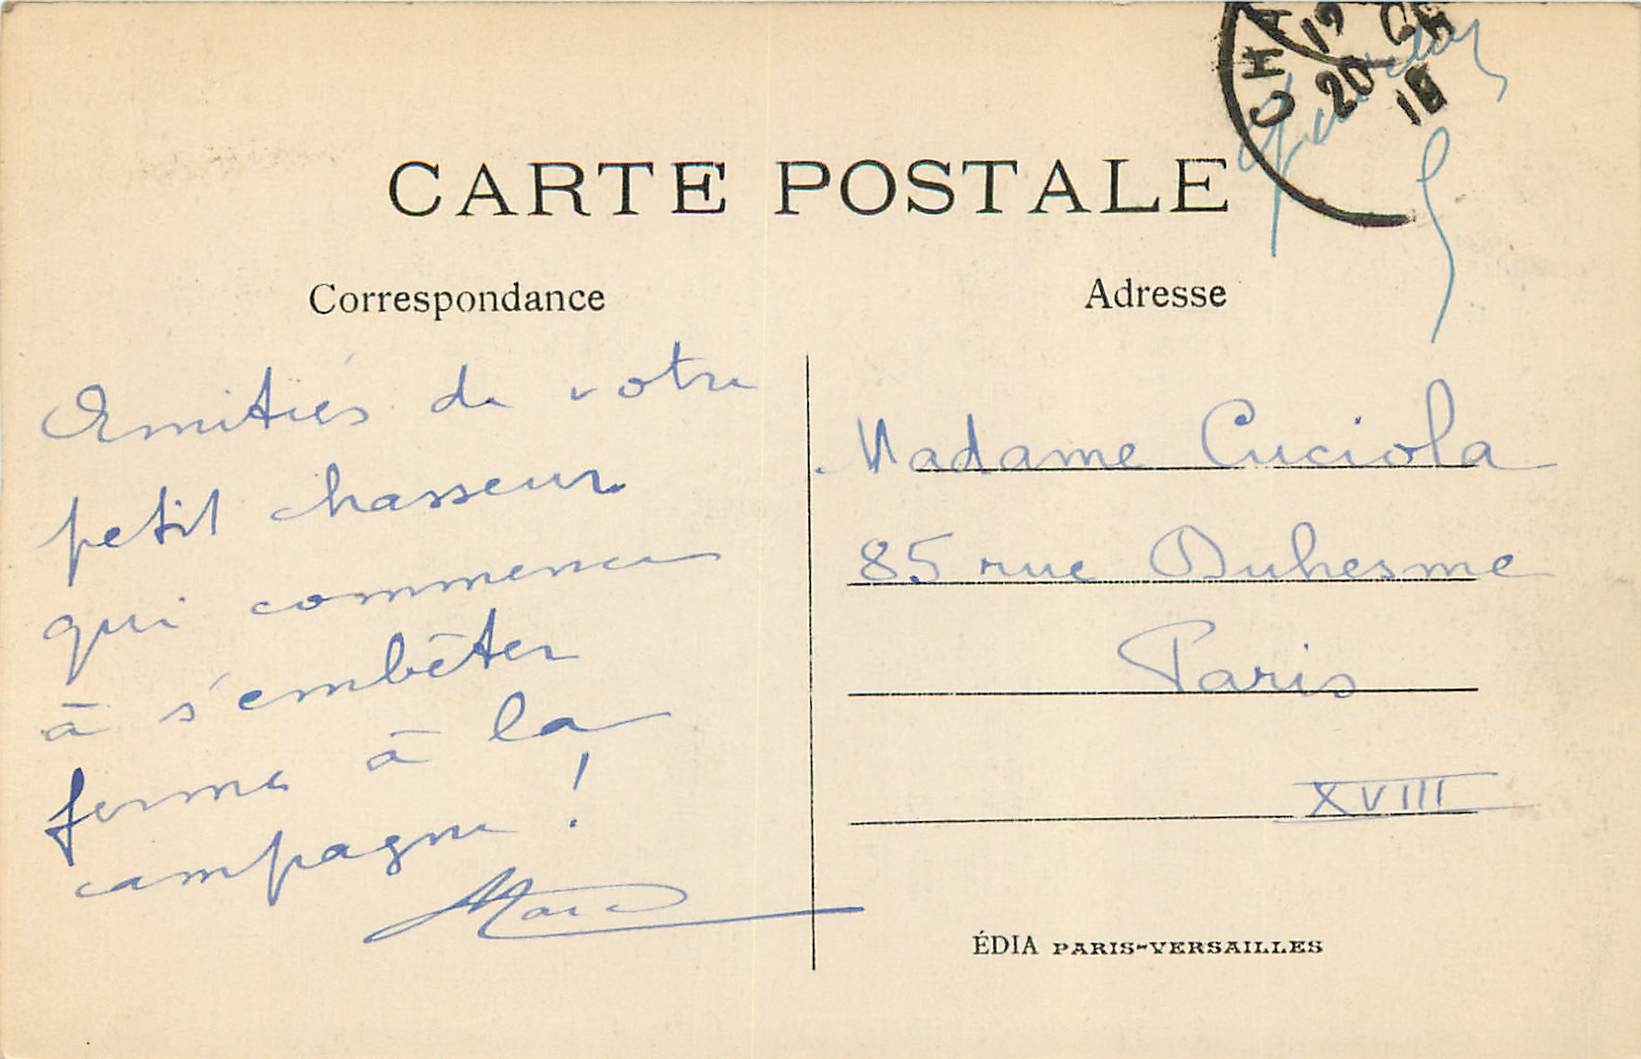 CHA
19
20
15
CARTE POSTALE
Correspondance
Adresse
Amitiés de votre
petit chasseur
qui commence
à s'embêter
ferme à la
campagne !
Marc
Madame Cuciola
85 rue Duhesme
Paris
XVIII
ÉDIA PARIS-VERSAILLES